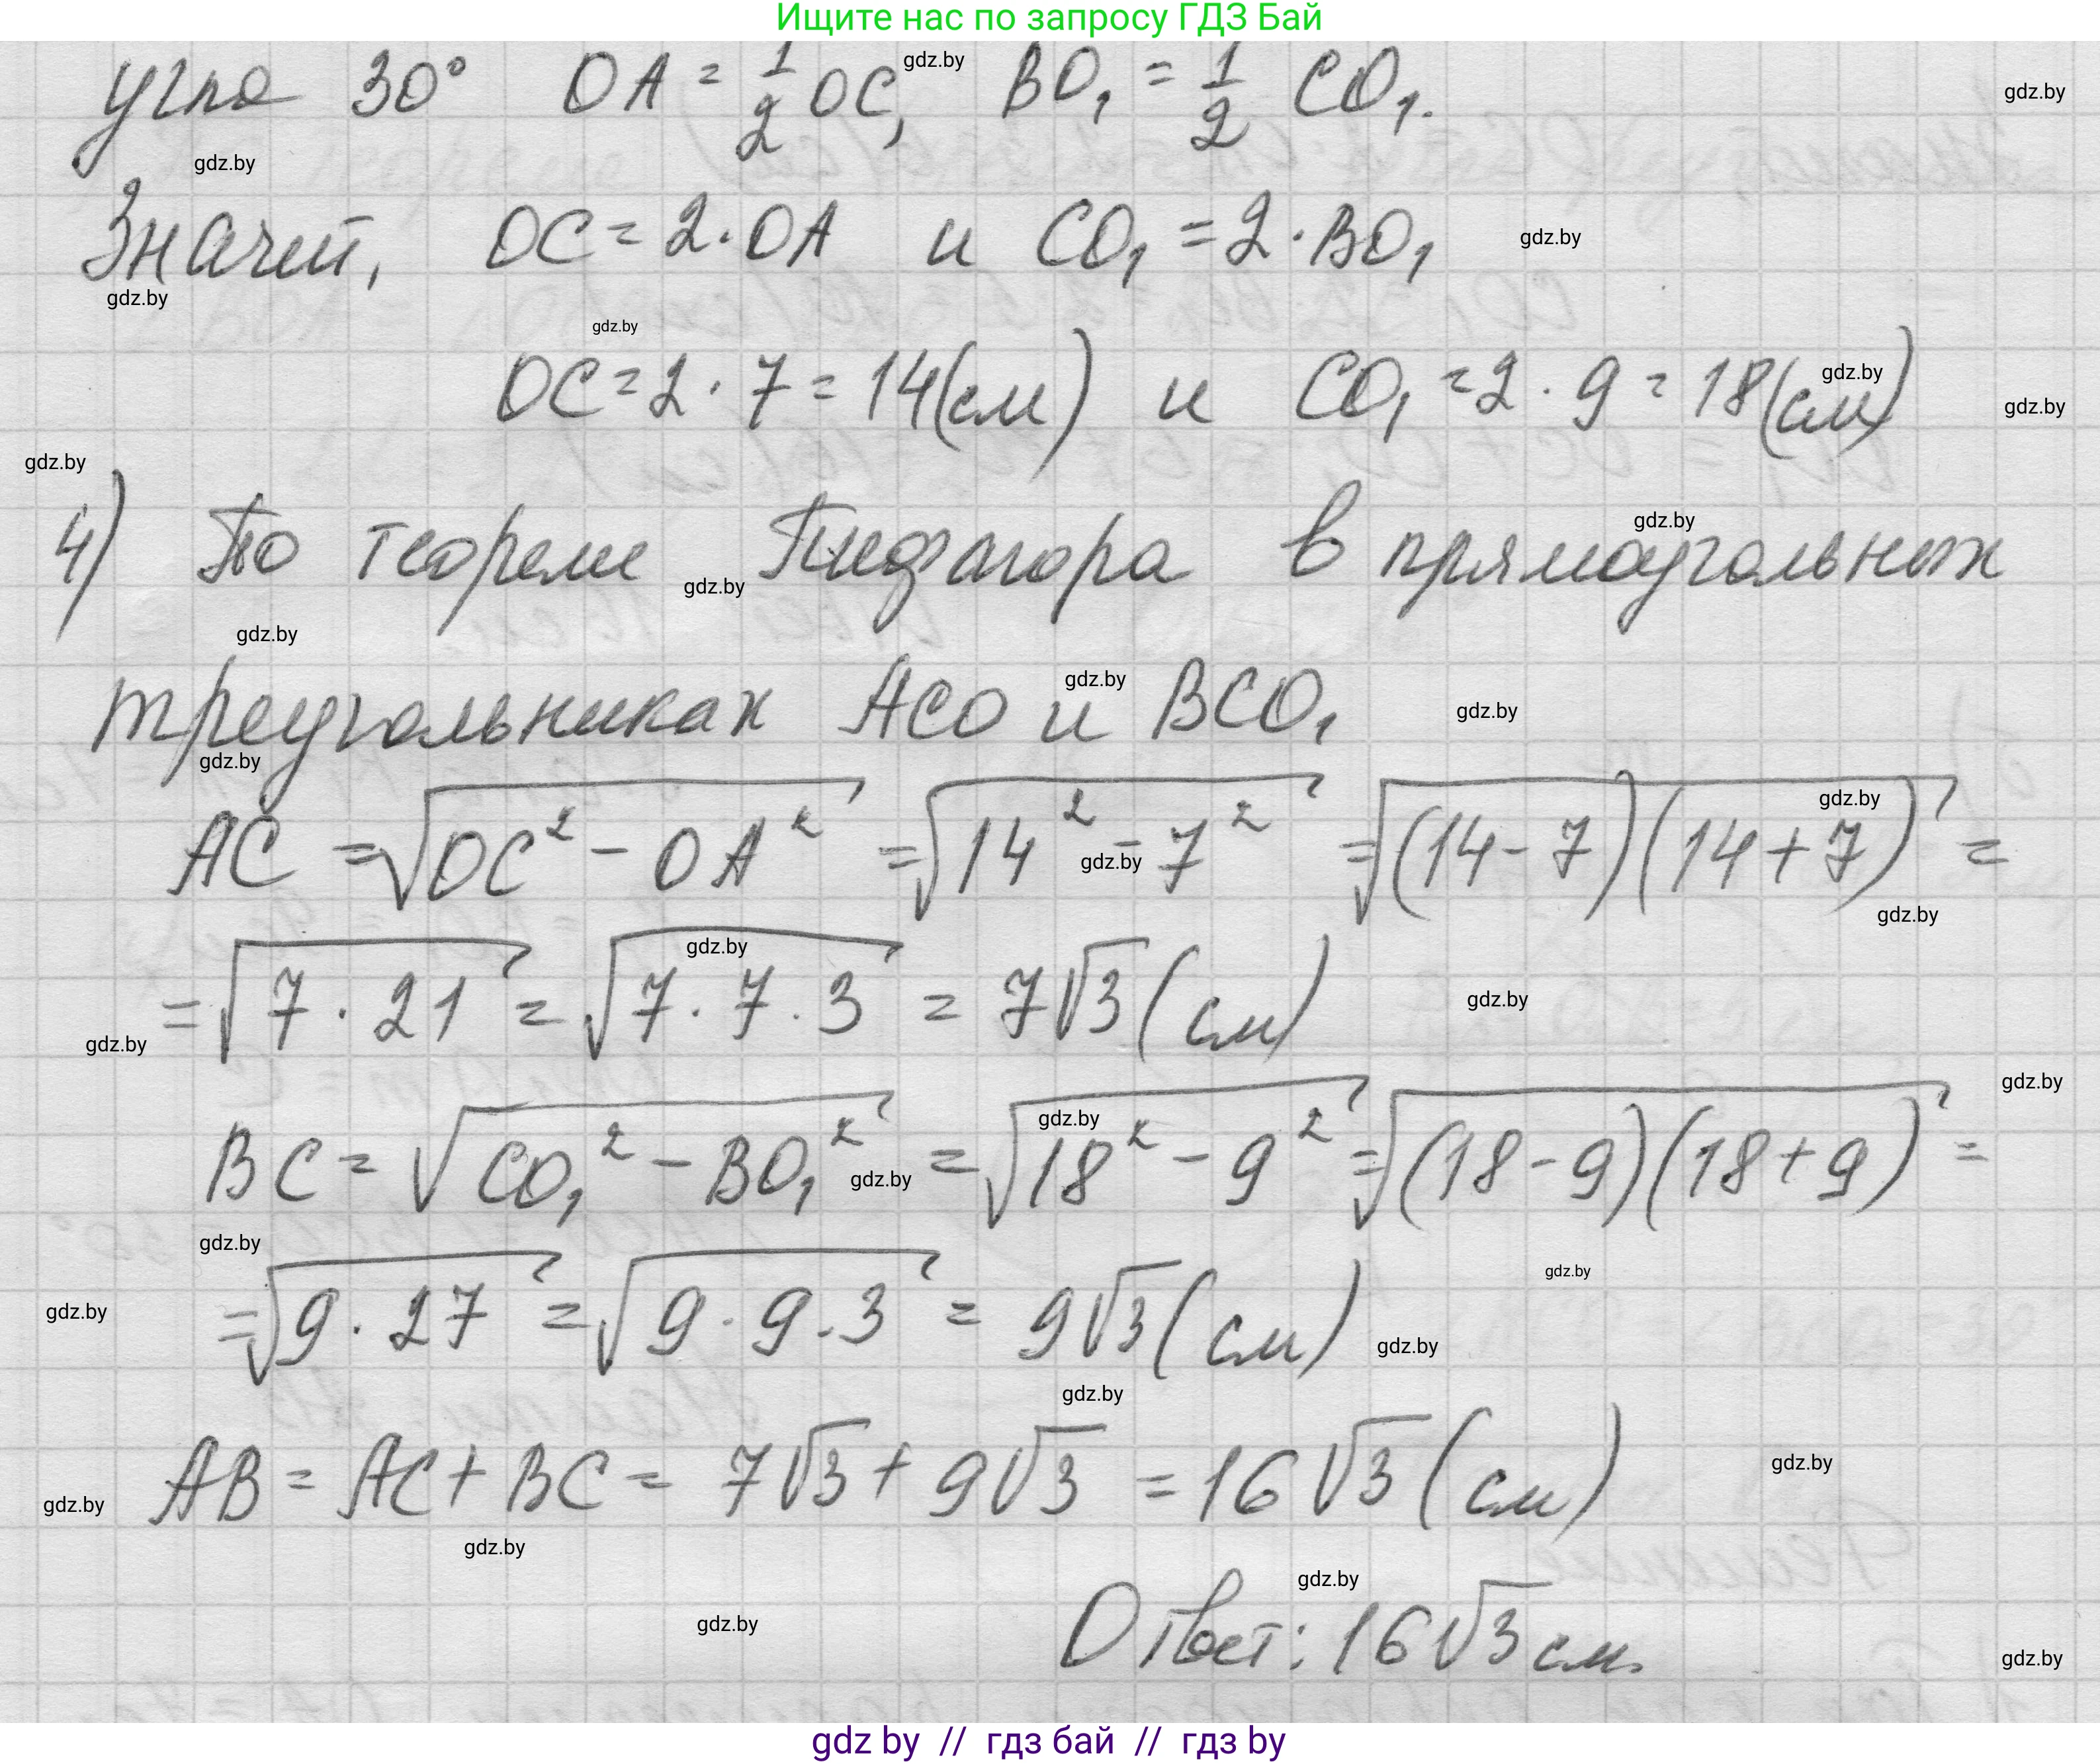 Ищите нас по запросу ГДЗ Бай
угла 30° OA = 1/2 OC, BO₁ = 1/2 CO₁.
Значит, OC = 2·OA и CO₁ = 2·BO₁
OC = 2 · 7 = 14(см) и CO₁ = 2 · 9 = 18(см)
4) По теореме Пифагора в прямоугольных
треугольниках ACO и BCO₁
AC = √(OC² − OA²) = √(14² − 7²) = √((14 − 7)(14 + 7)) =
= √(7 · 21) = √(7 · 7 · 3) = 7√3 (см)
BC = √(CO₁² − BO₁²) = √(18² − 9²) = √((18 − 9)(18 + 9)) =
= √(9 · 27) = √(9 · 9 · 3) = 9√3 (см)
AB = AC + BC = 7√3 + 9√3 = 16√3 (см)
Ответ: 16√3 см.
gdz by // гдз бай // гдз by